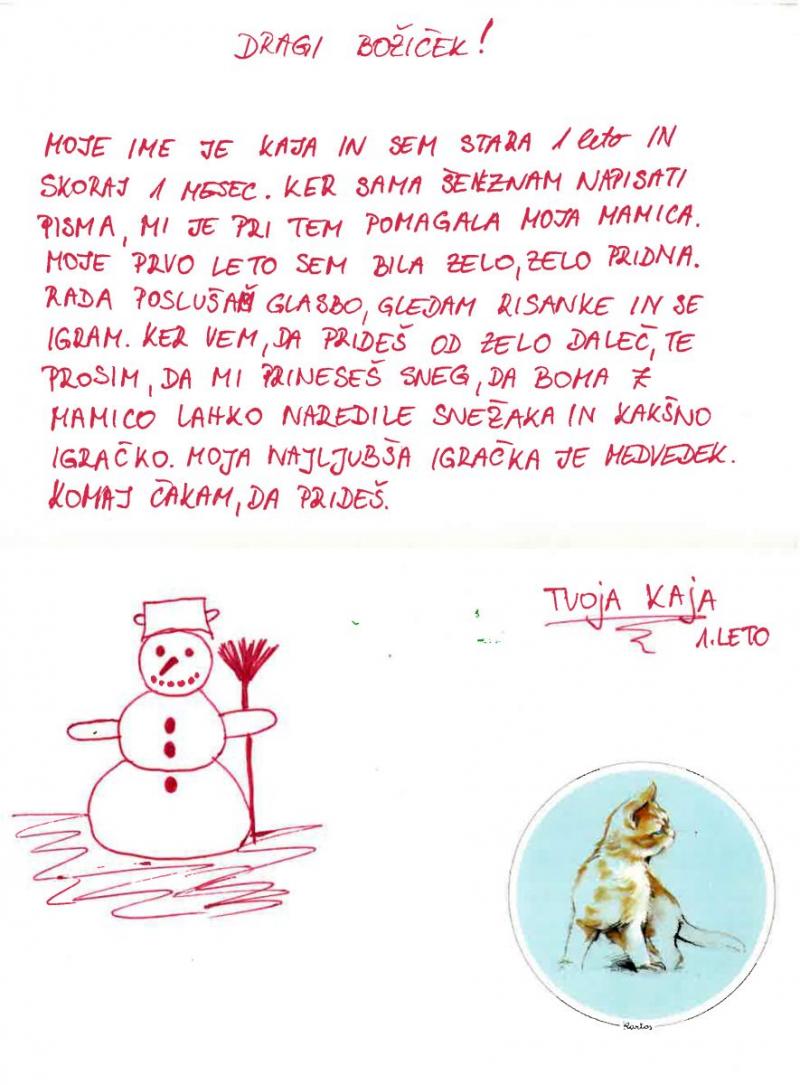 DRAGI BOŽIČEK!
MOJE IME JE KAJA IN SEM STARA 1 leto IN
SKORAJ 1 MESEC. KER SAMA ŠE NE ZNAM NAPISATI
PISMA, MI JE PRI TEM POMAGALA MOJA MAMICA.
MOJE PRVO LETO SEM BILA ZELO, ZELO PRIDNA.
RADA POSLUŠAM GLASBO, GLEDAM RISANKE IN SE
IGRAM. KER VEM, DA PRIDEŠ OD ZELO DALEČ, TE
PROSIM, DA MI PRINESEŠ SNEG, DA BOMA Z
MAMICO LAHKO NAREDILE SNEŽAKA IN KAKŠNO
IGRAČKO. MOJA NAJLJUBŠA IGRAČKA JE MEDVEDEK.
KOMAJ ČAKAM, DA PRIDEŠ.
TVOJA KAJA
1. LETO
Kartos